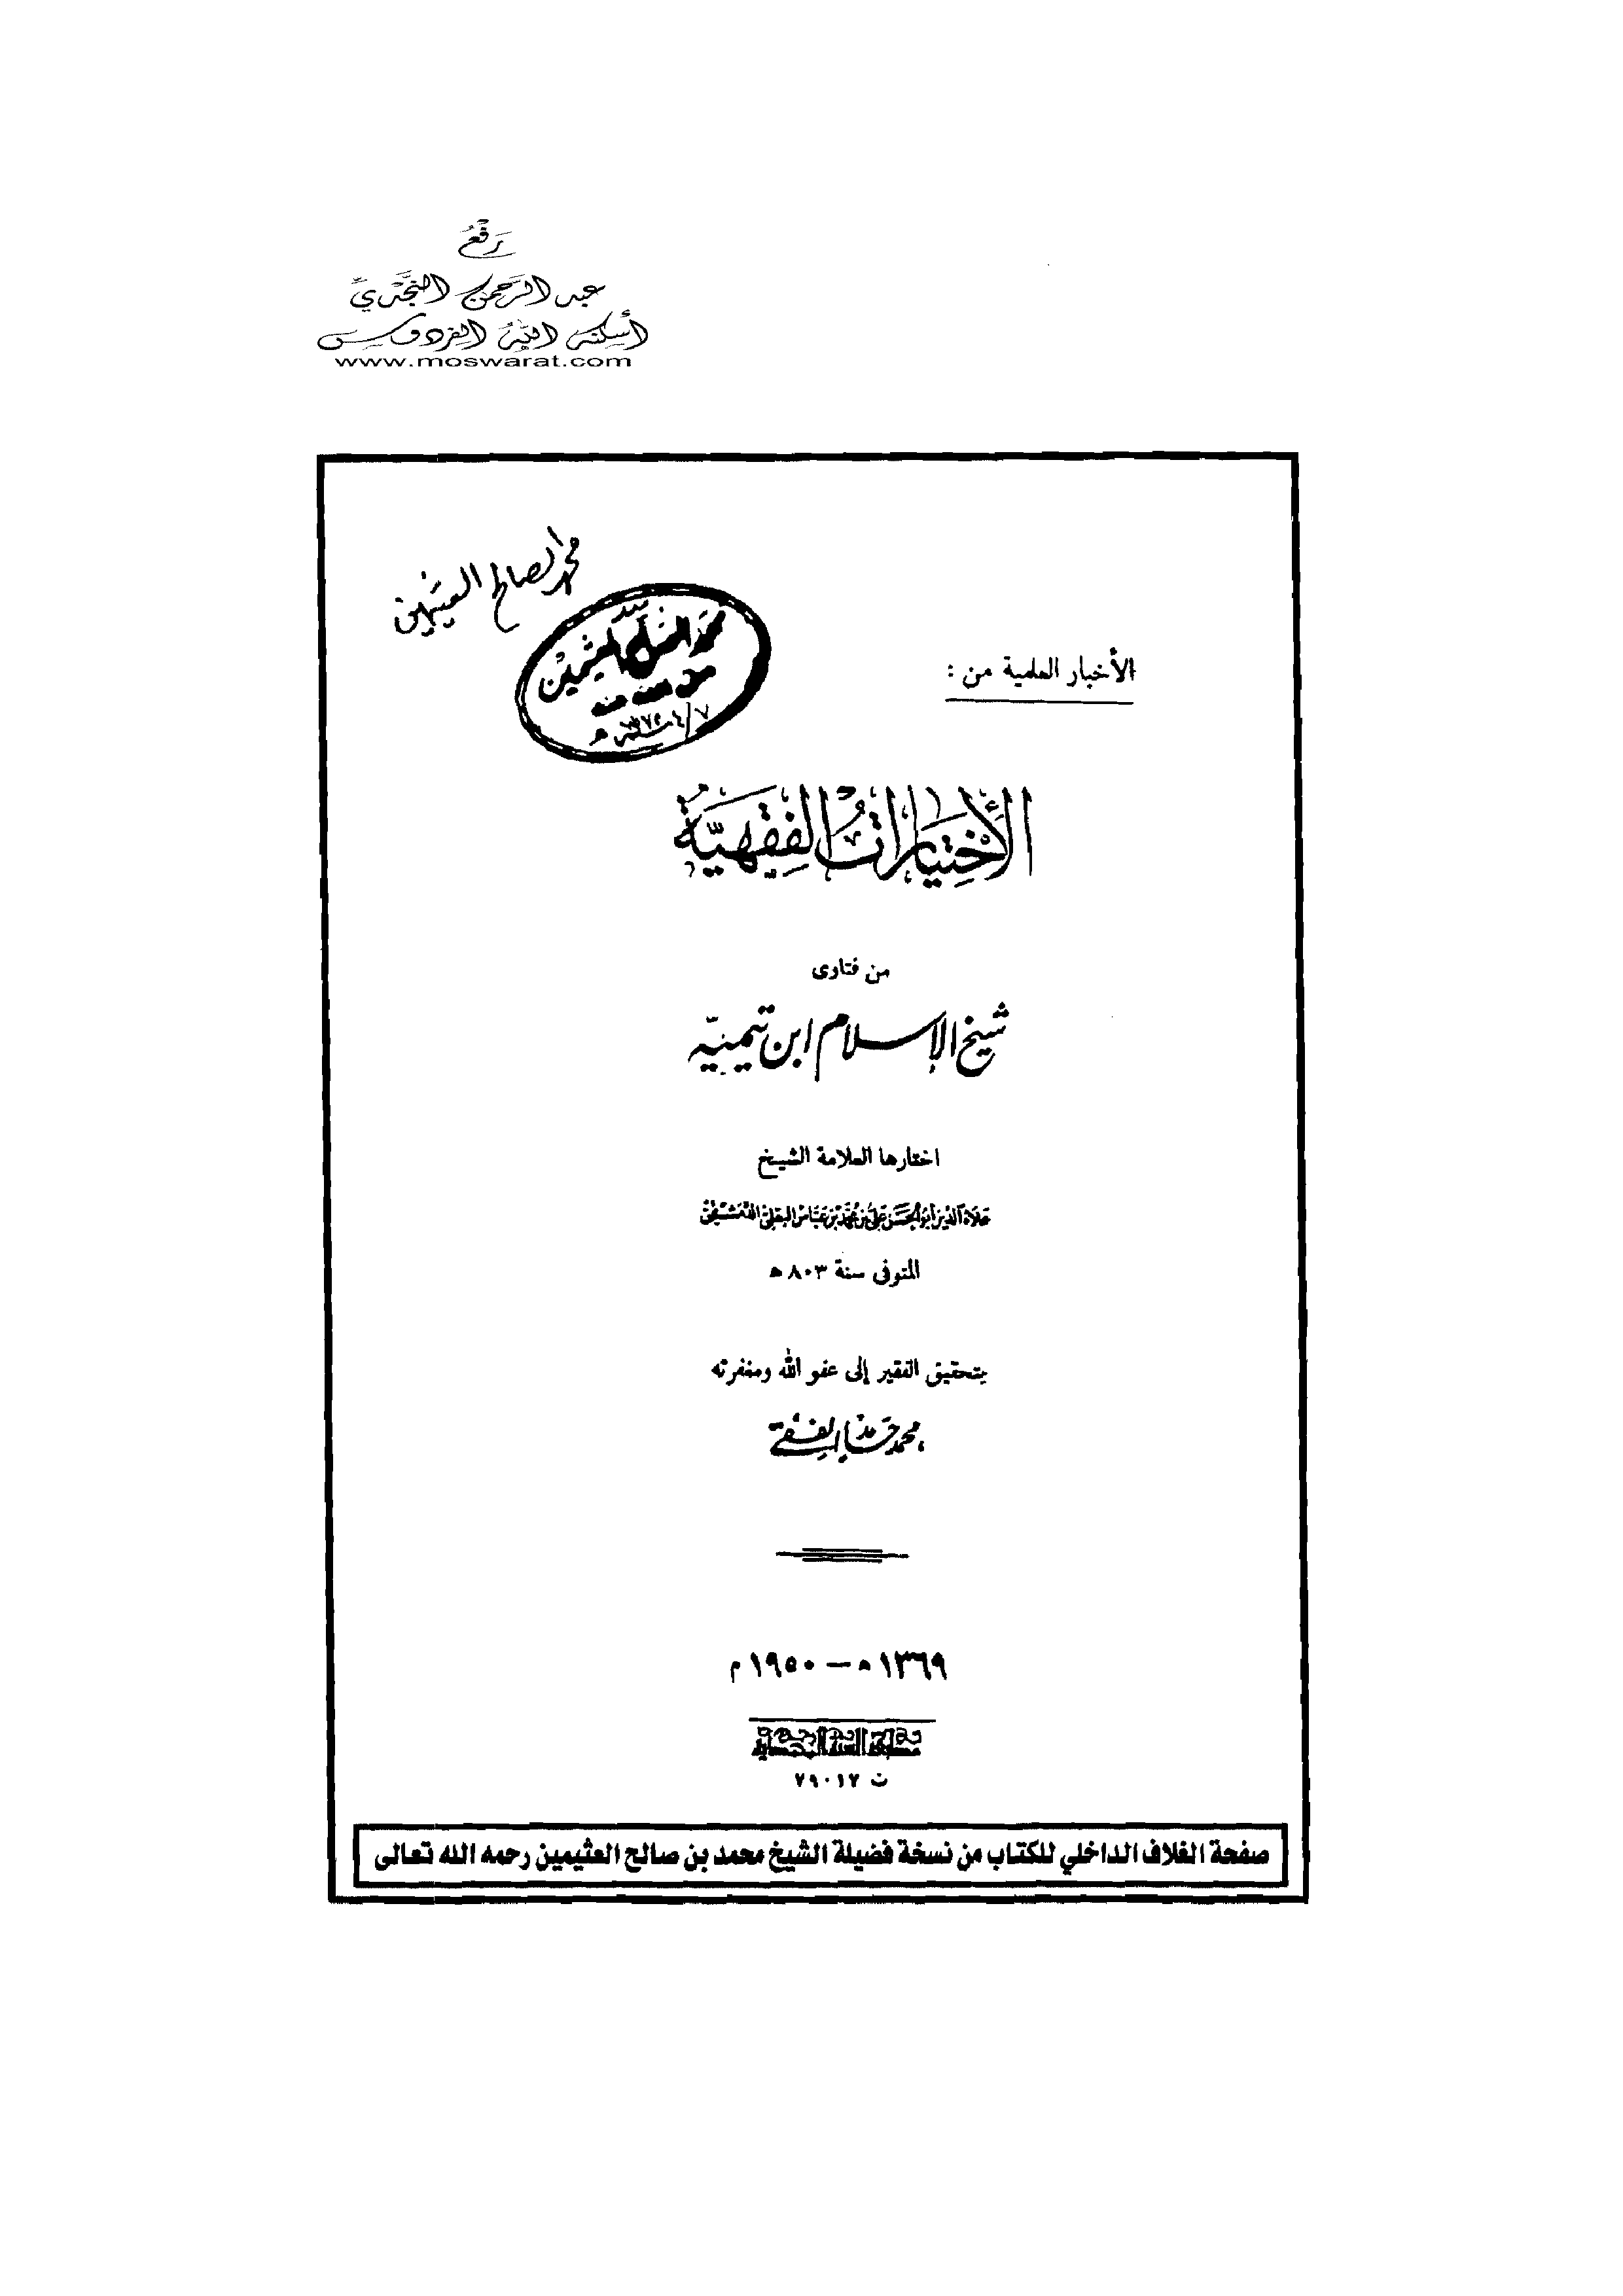 رَفْعُ
عبد الرحمن النجدي
أسكنه الله الفردوس
www.moswarat.com
محمد الصالح العثيمين
محمد الصالح العثيمين
الأخبار العلمية من :
الأخْتِيَاراتُ الفِقهيَّة
من فتاوى
شيخ الإسلام ابن تيميّه
اختارها العلامة الشيخ
علاء الدين أبو الحسن علي بن محمد بن عباس البعلي الدمشقي
المتوفى سنة ٨٠٣ ه
بتحقيق الفقير إلى عفو الله ومغفرته
محمد حامد الفقي
١٣٦٩ ه — ١٩٥٠ م
مطبعة السنة المحمدية
ت ٧٩٠١٧
صفحة الغلاف الداخلي للكتاب من نسخة فضيلة الشيخ محمد بن صالح العثيمين رحمه الله تعالى